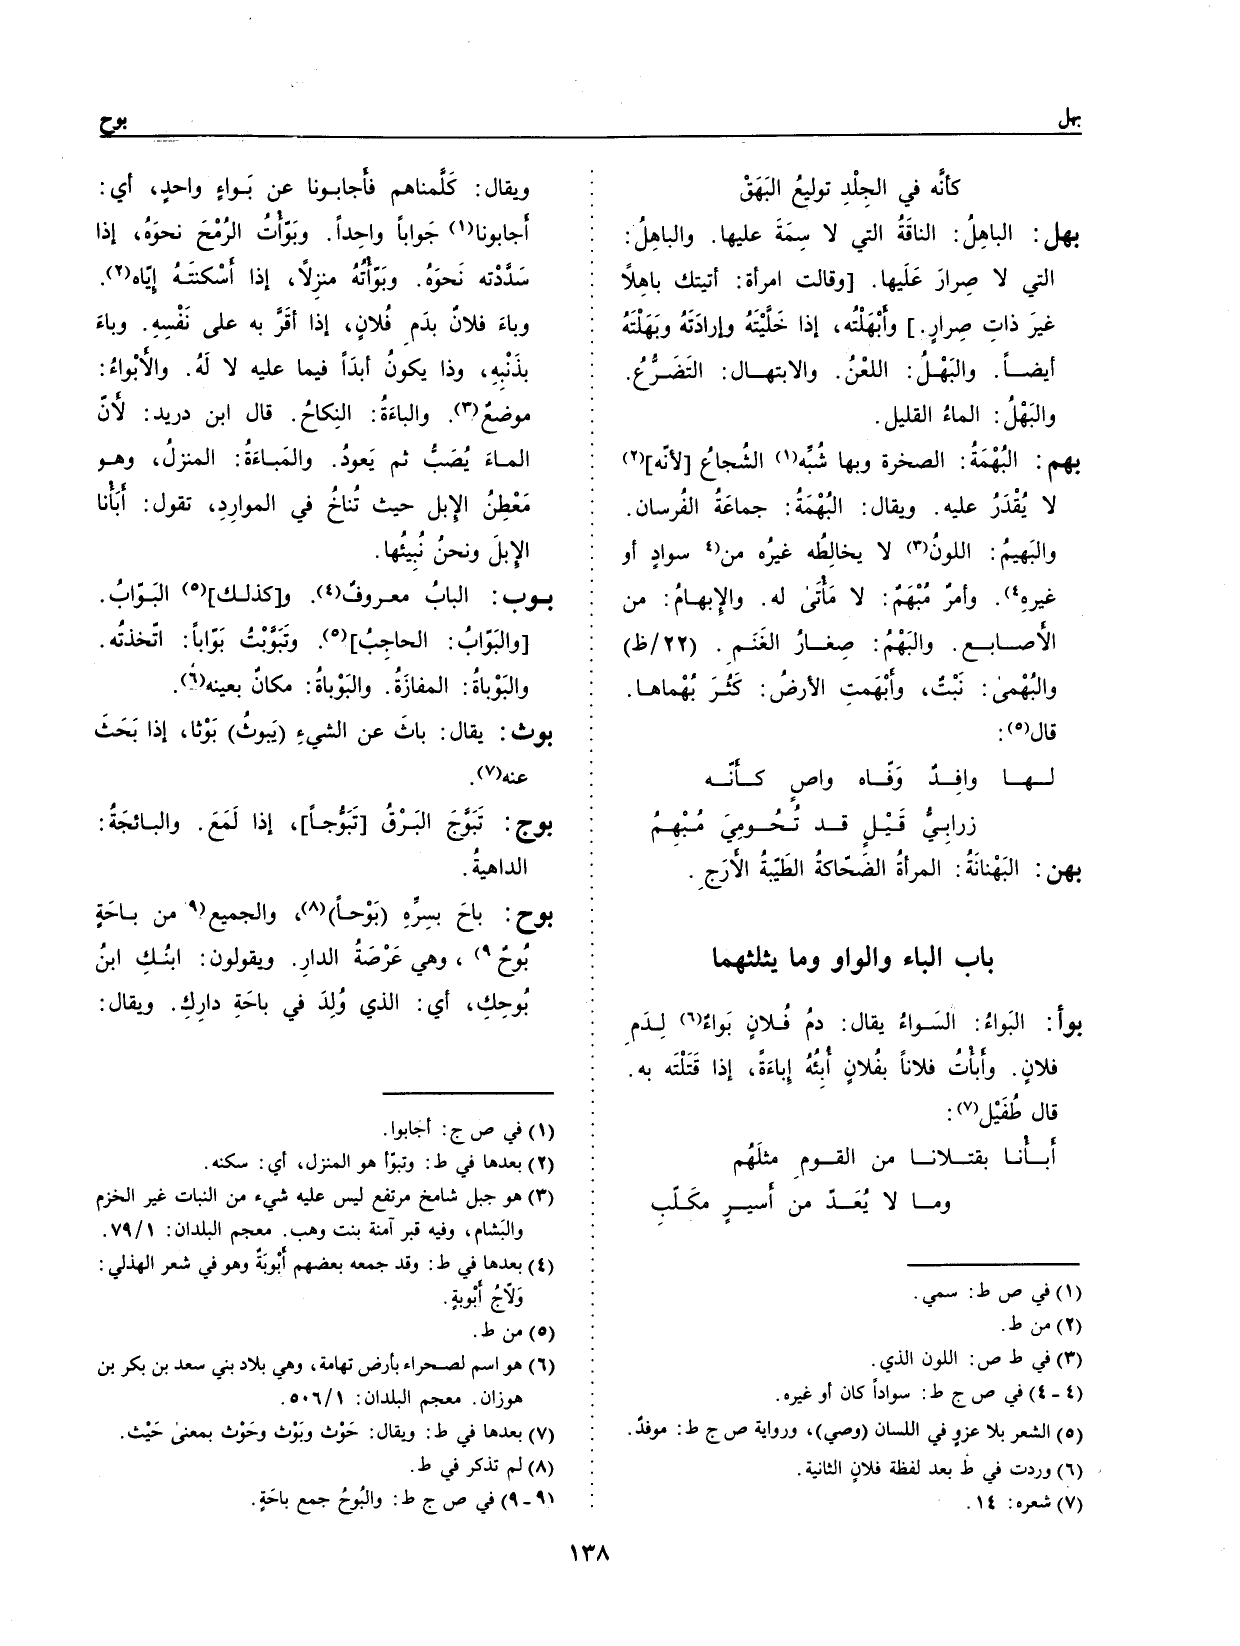 بهل
بوح
كأنَّه في الجِلْدِ توليعُ البَهَقْ
بهل: الباهِلُ: الناقَةُ التي لا سِمَةَ عليها. والباهِلُ:
التي لا صِرارَ عَلَيها. [وقالت امرأة: أتيتك باهلاً
غيرَ ذاتِ صِرارٍ.] وأَبْهَلْتُه، إذا خَلَّيْتَهُ وإرادَتَهُ وبَهَلْتَهُ
أيضـاً. والبَهْـلُ: اللعْنُ. والابتهـال: التَضَـرُّع.
والبَهْلُ: الماءُ القليل.
بهم: البُهْمَةُ: الصخرة وبها شُبِّه(١) الشُجاعُ [لأنّه](٢)
لا يُقْدَرُ عليه. ويقال: البُهْمَةُ: جماعَةُ الفُرسان.
والبَهيمُ: اللونُ(٣) لا يخالِطُه غيرُه من(٤ سوادٍ أو
غيرِه٤). وأمرٌ مُبْهَمٌ: لا مَأْتَىٰ له. والإبهـامُ: من
الأصـابـع. والبَهْمُ: صِغـارُ الغَنَـمِ. (٢٢/ظ)
والبُهْمىٰ: نَبْتٌ، وأَبْهَمتِ الأرضُ: كَثُـرَ بُهْماها.
قال(٥):
لـهـا وافِـدٌ وَفّـاه واصٍ كـأنّـه
زرابِـيُّ قَيْـلٍ قـد تُـحُـومِيَ مُـبْهِـمُ
بهن: البَهْنانَةُ: المرأةُ الضَحّاكةُ الطَيِّبَةُ الأرَجِ.
باب الباء والواو وما يثلثهما
بوأ: البَواءُ: السَواءُ يقال: دمُ فُـلانٍ بَواءُ(٦) لِـدَمِ
فلانٍ. وأَبأْتُ فلاناً بفُلانٍ أُبِئُهُ إباءَةً، إذا قَتَلْتَه به.
قال طُفَيْل(٧):
أبـأْنـا بقتـلانـا من القـوم مثلَهُم
ومـا لا يُعَـدّ من أسيـرٍ مكَلَّبِ
(١) في ص ط: سمي.
(٢) من ط.
(٣) في ط ص: اللون الذي.
(٤ - ٤) في ص ج ط: سواداً كان أو غيره.
(٥) الشعر بلا عزوٍ في اللسان (وصي)، ورواية ص ج ط: موفدٌ.
(٦) وردت في ط بعد لفظة فلانٍ الثانية.
(٧) شعره: ١٤.
ويقال: كَلَّمناهم فأجابـونا عن بَـواءٍ واحدٍ، أي:
أجابونا(١) جَواباً واحِداً. وبَوّأْتُ الرُمْحَ نحوَهُ، إذا
سَدَّدْته نَحوَهُ. وبَوّأْتُهُ منزِلاً، إذا أَسْكنتَـهُ إيّاه(٢).
وباءَ فلانٌ بدَمِ فُلانٍ، إذا أقَرَّ به على نَفْسِهِ. وباءَ
بذَنْبِهِ، وذا يكونُ أبدَاً فيما عليه لا لَهُ. والأَبْواءُ:
موضعٌ(٣). والباءَةُ: النِكاحُ. قال ابن دريد: لأنّ
الماءَ يُصَبُّ ثم يَعودُ. والمَبـاءَةُ: المنزِلُ، وهـو
مَعْطِنُ الإبلِ حيث تُناخُ في الموارِدِ، تقول: أَبَأْنا
الإبلَ ونحنُ نُبِيئُها.
بـوب: البابُ معـروفٌ(٤). و[كذلـك](٥) البَـوّابُ.
[والبَوّابُ: الحاجِبُ](٥). وتَبَوَّبْتُ بَوّاباً: اتّخذتُه.
والبَوْباةُ: المفازَةُ. والبَوْباة: مكانٌ بعينه(٦).
بوث: يقال: باثَ عن الشيءِ (يَبوثُ) بَوْثا، إذا بَحَثَ
عنه(٧).
بوج: تَبَوَّجَ البَـرْقُ [تَبَوُّجـاً]، إذا لَمَعَ. والبـائجَةُ:
الداهيةُ.
بوح: باحَ بسِرِّهِ (بَوْحـاً)(٨)، والجميع(٩ من بـاحَةٍ
بُوحٌ ٩)، وهي عَرْصَةُ الدار. ويقولون: ابنُـكِ ابنُ
بُوحِكِ، أي: الذي وُلِدَ في باحَةِ دارِكِ. ويقال:
(١) في ص ج: أجابوا.
(٢) بعدها في ط: وتبوّأ هو المنزل، أي: سكنه.
(٣) هو جبل شامخ مرتفع ليس عليه شيء من النبات غير الخزم
والبَشام، وفيه قبر آمنة بنت وهب. معجم البلدان: ٧٩/١.
(٤) بعدها في ط: وقد جمعه بعضهم أَبْوِبَةٌ وهو في شعر الهذلي:
وَلّاجُ أَبْوبةٍ.
(٥) من ط.
(٦) هو اسم لصحراء بأرض تهامة، وهي بلاد بني سعد بن بكر بن
هوزان. معجم البلدان: ٥٠٦/١.
(٧) بعدها في ط: ويقال: حَوْث وبَوْث وحَوْث بمعنىٰ حَيْث.
(٨) لم تذكر في ط.
(٩ - ٩) في ص ج ط: والبُوحُ جمع باحَةٍ.
١٣٨